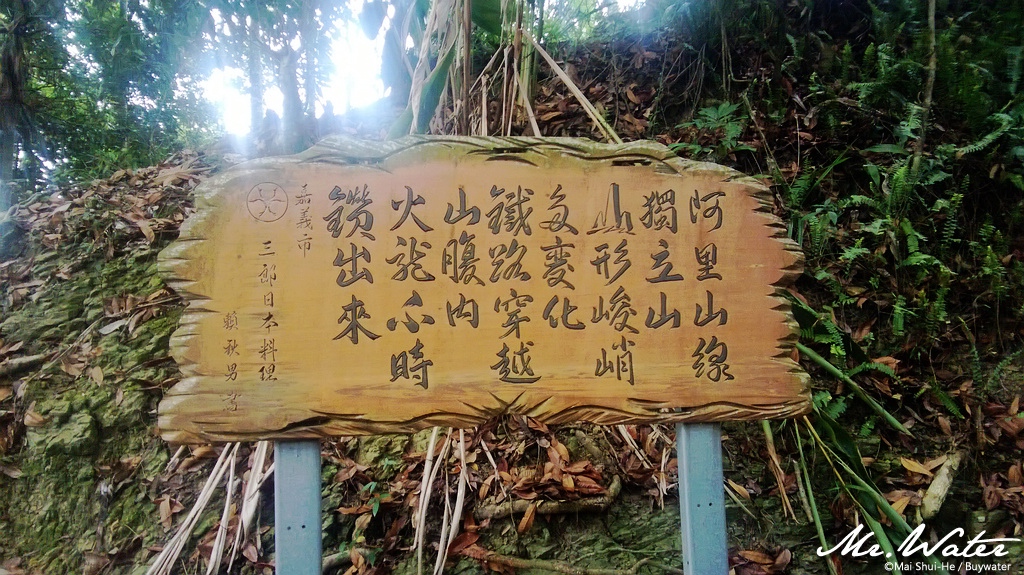 阿里山線
獨立山
山形峻峭
多變化
鐵路穿越
山腹內
火龍不時
鑽出來
嘉義市
三郎日本料理
賴秋男
Mr. Water
©Mai Shui-He / Buywater